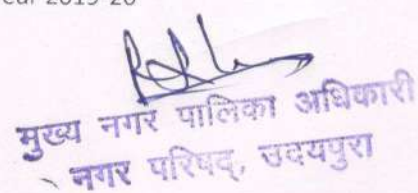 2019-20
मुख्य नगर पालिका अधिकारी
नगर परिषद्, उदयपुरा